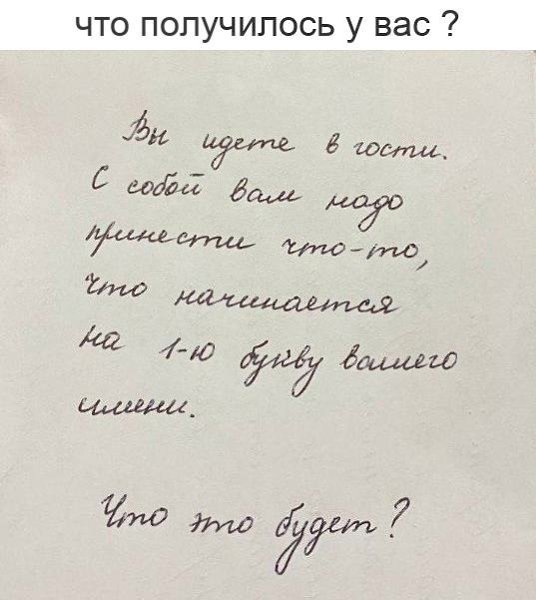 что получилось у вас ?
Вы идете в гости.
С собой вам надо
принести что-то,
что начинается
на 1-ю букву вашего
имени.
Что это будет?